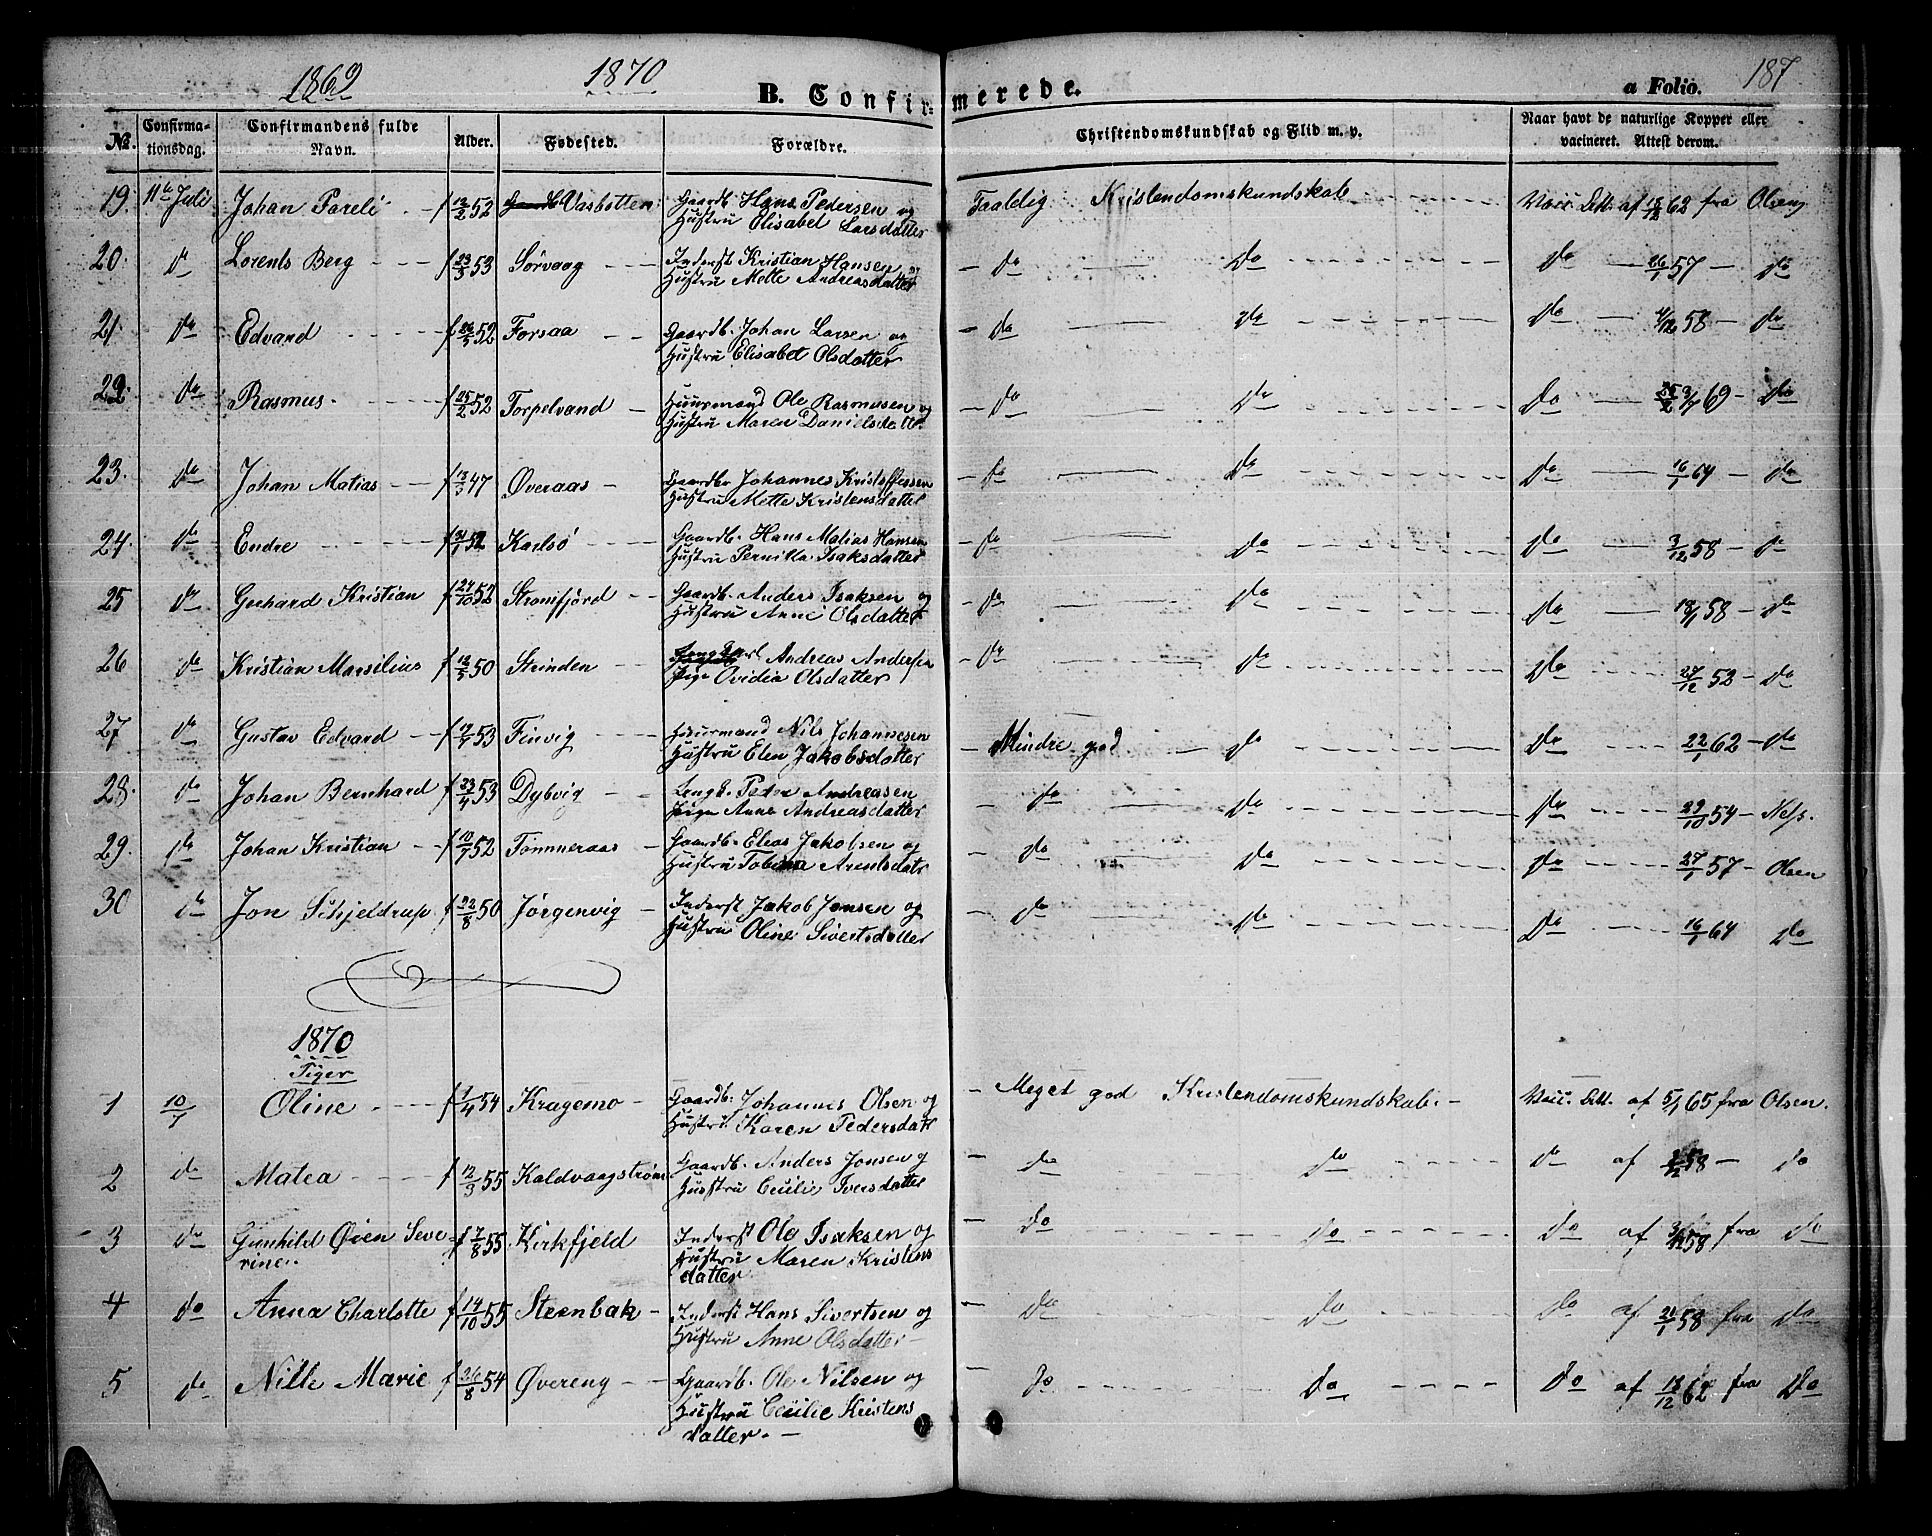 1869 1870 B. Confirmerede. a Folio. 187
No. Confirmationsdag. Confirmandens fulde Navn. Alder. Fødested. Forældre. Christendomskundskab og Flid m. v. Naar havt de naturlige Kopper eller vacineret. Attest derom.
19. 11te Juli Johan Pareli f 12/2 52 Vasbotten Gaardb. Hans Pedersen og Taaldig Kristendomskundskab Vacc. Att. af 18/8 62 fra Olsen
Hustru Elisabet Larsdatter
20. do Lorents Berg f 23/3 53 Sørvaag Inderst Kristian Hansen og do do do 26/1 57 do
Hustru Mette Andreasdatter
21. do Edvard f 26/5 52 Forsaa Gaardb. Johan Larsen og do do do 4/12 58 do
Hustru Elisabet Olsdatter
22. do Rasmus f 25/2 52 Torpelvand Huusmand Ole Rasmusen og do do do 69 do
Hustru Maren Danielsdatter
23. do Johan Matias f 13/3 47 Øveraas Gaardbr Johannes Kristoffersen do do do 16/1 64 do
Hustru Mette Kristensdatter
24. do Endre f 31/1 52 Karlsö Gaardb. Hans Matias Hansen do do do 3/12 58 do
Hustru Pernilla Isaksdatter
25 do Gerhard Kristian f 24/10 52 Stromfjord Gaardb. Anders Isaksen og do do do 18/1 58 do
Hustru Anne Olsdatter
26 do Kristian Marsilius f 12/5 50 Strinden Ungkarl Andreas Andersen do do do 27/12 52 do
Pige Ovidia Olsdatter
27 do Gustav Edvard f 19/7 53 Finvig Huusmand Nils Johannesen Mindre god do do 22/1 62 do
Hustru Elen Jakobsdatter
28. do Johan Bernhard f 23/4 53 Dybvig Ungk. Peder Andreasen do do do 29/10 54 Ness.
Pige Anne Andreasdatter
29. do Johan Kristian f 10/7 52 Tømmeraas Gaardb. Elias Jakobsen og do do do 27/1 57 Olsen
Hustru Tobina Arentsdatr
30 do Jon Schjeldrup f 22/8 50 Jørgenvig Inderst Jakob Jonsen og do do Do 16/1 64 Do
Hustru Oline Sivertsdatter
1870
Piger
1 10/7 Oline f 1/4 54 Kragemo Gaardb. Johannes Olsen og Meget god Kristendomskundskab. Vacc. Att. af 5/1 65 fra Olsen.
Hustru Karen Pedersdatr
2 do Matea f 12/3 55 Kaldvaagstrøm Gaardb. Anders Jonsen og do do do af 58 do
Hustru Cecilie Iversdatter
3 do Gunhild Øien Seve f 7/8 55 Kirkfjeld Inderst Ole Isaksen og do do do af 3/12 58 fra do
rine. Hustru Maren Kristens
datter
4 do Anna Charlotte f 14/10 55 Steenbak Inderst Hans Sivertsen og do do do af 21/1 58 fra do
Hustru Anne Olsdatter
5 do Nille Marie f 26/8 54 Øvereng Gaardb. Ole Nilsen og do do Do af 18/12 62 fra Do
Hustru Cecilie Kristens
datter.